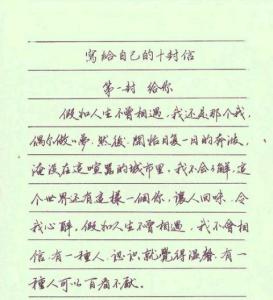 寫給自己的十封信
第一封 給你
假如人生不曾相遇，我还是那个我，
偶尔做一夢，然後，開始日复一日的奔波，
淹没在這喧嚣的城市里。我不会了解，這
个世界还有這樣一個你，讓人回味，令
我心醉。假如人生不曾相遇，我不會相
信，有一種人，一認识就覺得温馨，有一
種人可以百看不厭。